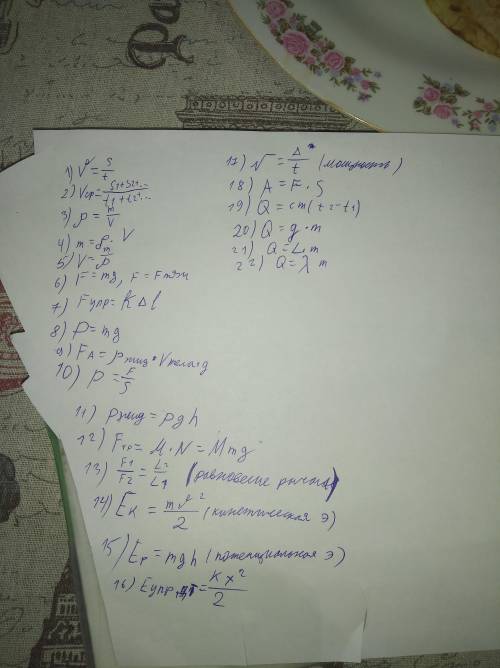 Pa
1) V = S/t
2) Vср = S1+S2+.../t1+t2+...
3) ρ = m/V
4) m = ρ · V
5) V = m/ρ
6) F = mg, F = Fтяж
7) Fупр = K Δ l
8) P = mg
9) FA = ρжид · Vтела · g
10) P = F/S
11) Pжид = ρgh
12) Fтр = M · N = Mmg
13) F1/F2 = L2/L1 (равновесие рычага)
14) Eк = mv²/2 (кинетическая э)
15) Ep = mgh (потенциальная э)
16) Eупр = kx²/2
17) N = A/t (мощность)
18) A = F · S
19) Q = cm (t2-t1)
20) Q = g · m
21) Q = L · m
22) Q = λ m